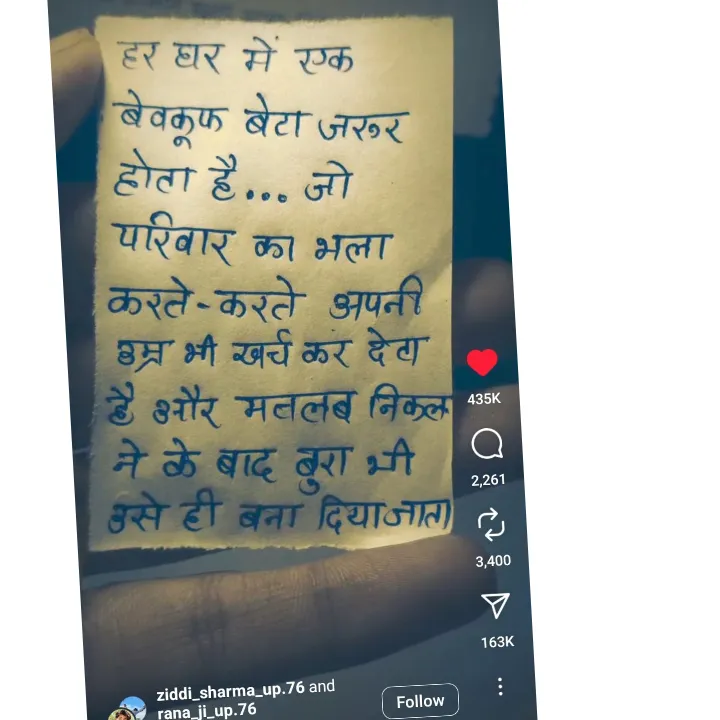 हर घर में एक
बेवकूफ बेटा जरूर
होता है... जो
परिवार का भला
करते-करते अपनी
उम्र भी खर्च कर देता
है और मतलब निकल
ने के बाद बुरा भी
उसे ही बना दिया जाता
435K
2,261
3,400
163K
ziddi_sharma_up.76 and
rana_ji_up.76
Follow